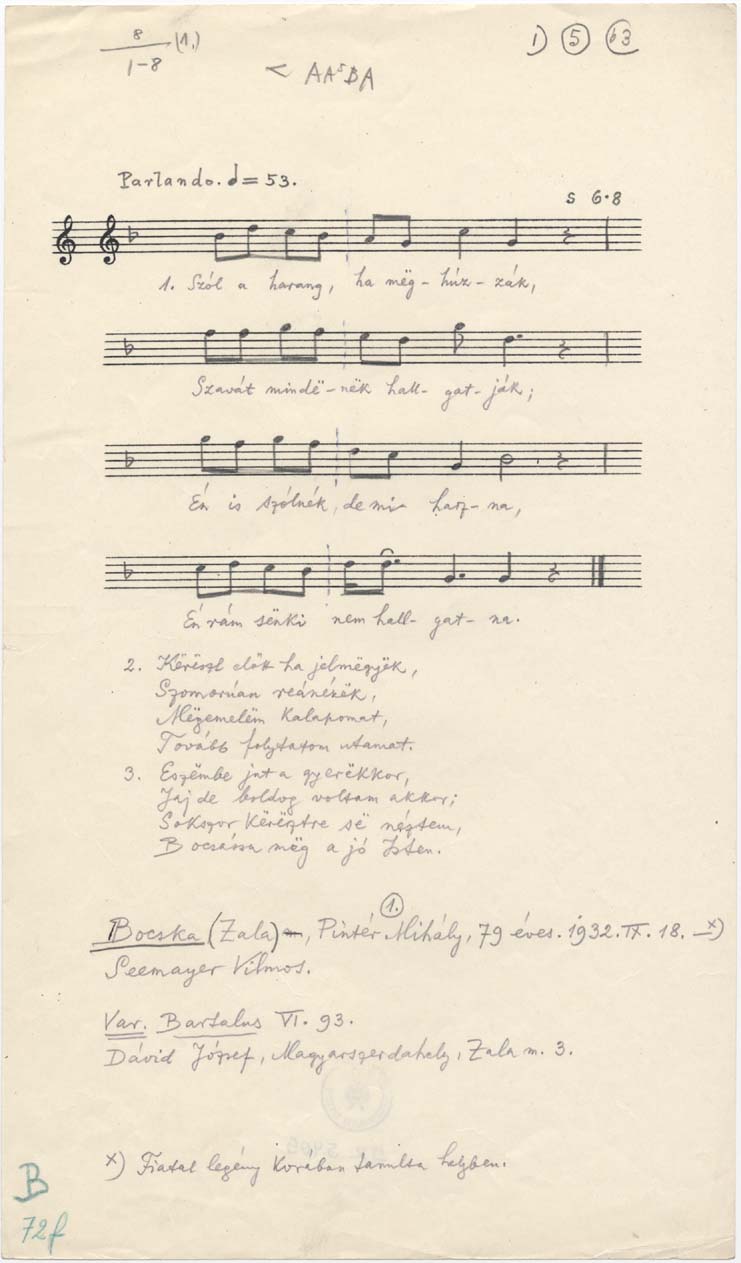 8 (1.)
1-8
I) 5 b3
< AA⁵BA
Parlando. 𝅗𝅥 = 53.
s 6·8
1. Szól a harang, ha mëg-húz-zák,
Szavát mindë-nëk hall-gat-ják;
Én is szólnék, de mi hasz-na,
Én rám sënki nem hall-gat-na.
2. Kërëszt előtt ha jelmëgyëk,
Szomorúan reánézëk,
Mëgemelëm kalapomat,
Tovább folytatom utamat.
3. Eszëmbe jut a gyerëkkor,
Jaj de boldog voltam akkor;
Sokszor kërësztre së néztem,
Bocsássa mëg a jó Isten.
1.
Bocska (Zala), Pintér Mihály, 79 éves. 1932. IX. 18. x)
Seemayer Vilmos.
Var. Bartalus VI. 93.
Dávid József, Magyarszerdahely, Zala m. 3.
x) Fiatal legény korában tanulta helyben.
B
72f